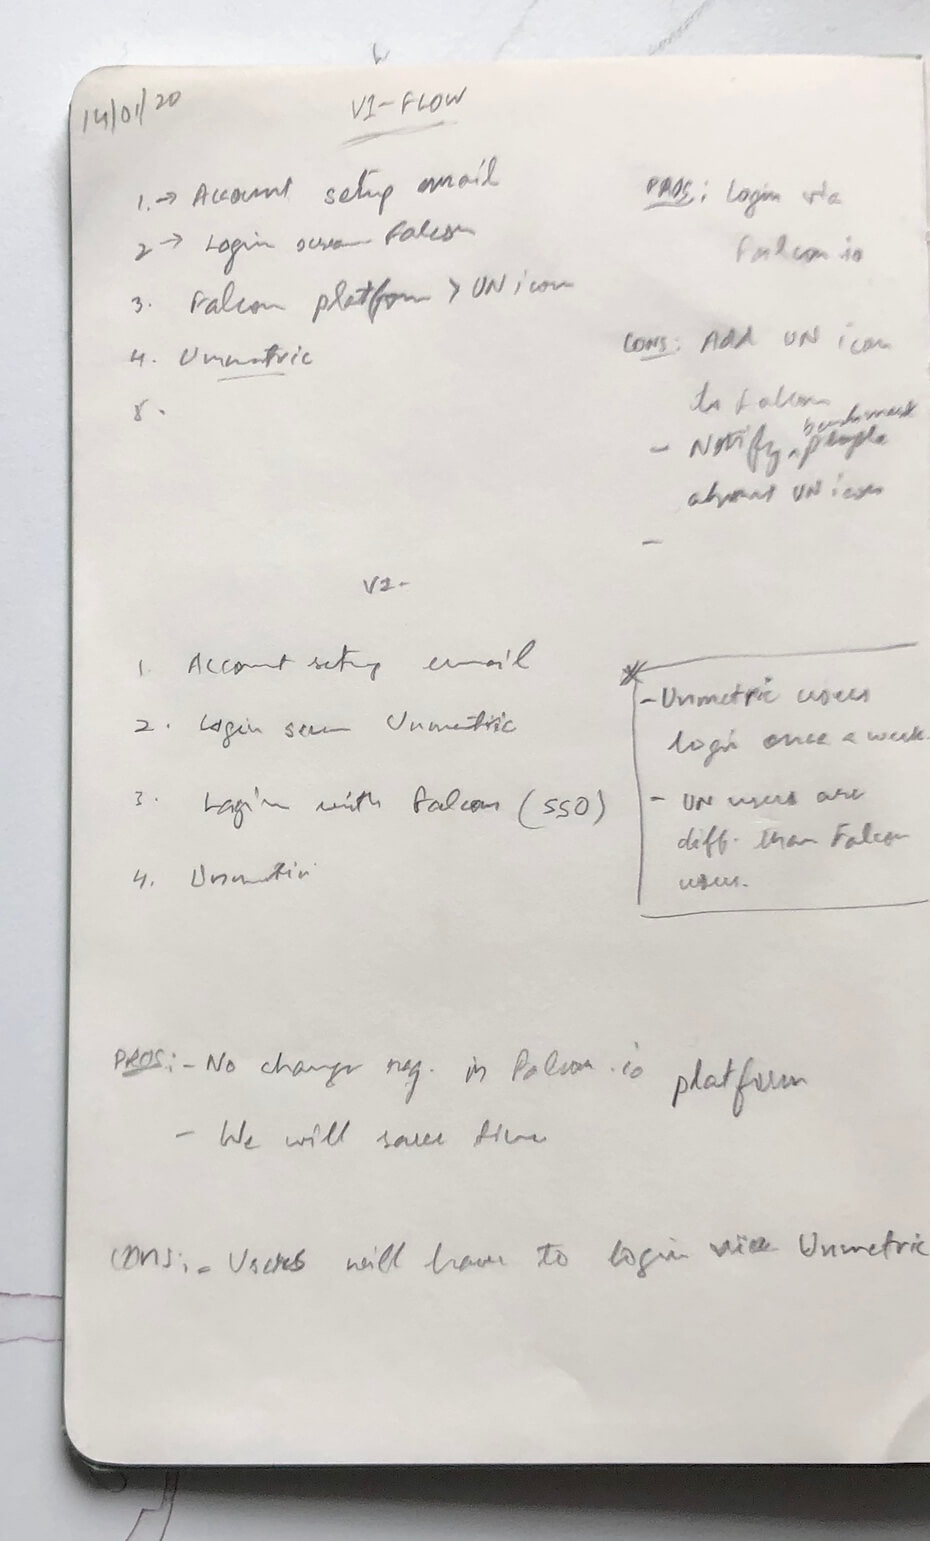 14/01/20
V1-FLOW
1.→ Account setup email
2 → Login screen Falcon
3. Falcon platform > UN icon
4. Unmetric
5.
PROS: Login via
Falcon.io
CONS: Add UN icon
to Falcon
- Notify people
about UN icon
-
V2-
1. Account setup email
2. Login screen Unmetric
3. Login with Falcon (SSO)
4. Unmetric
- Unmetric users
login once a week.
- UN users are
diff. than Falcon
users.
PROS:- No change req. in Falcon.io platform
- We will save time
CONS:- Users will have to login via Unmetric